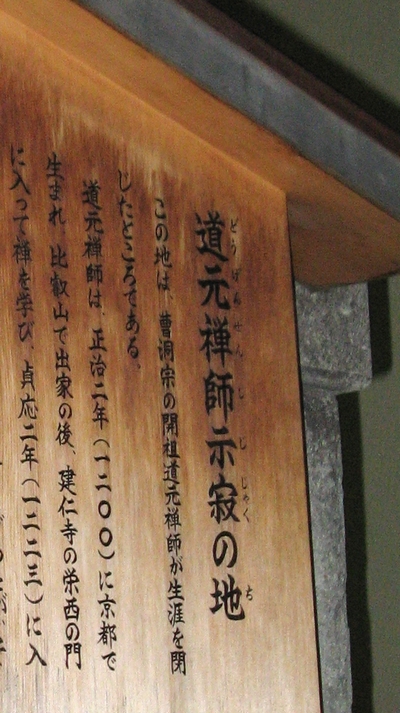 道元禅師示寂の地
どうげんぜんじじじゃくち
この地は、曹洞宗の開祖道元禅師が生涯を閉
じたところである。
道元禅師は、正治二年（一二〇〇）に京都で
生まれ、比叡山で出家の後、建仁寺の栄西の門
に入って禅を学び、貞応二年（一二二三）に入